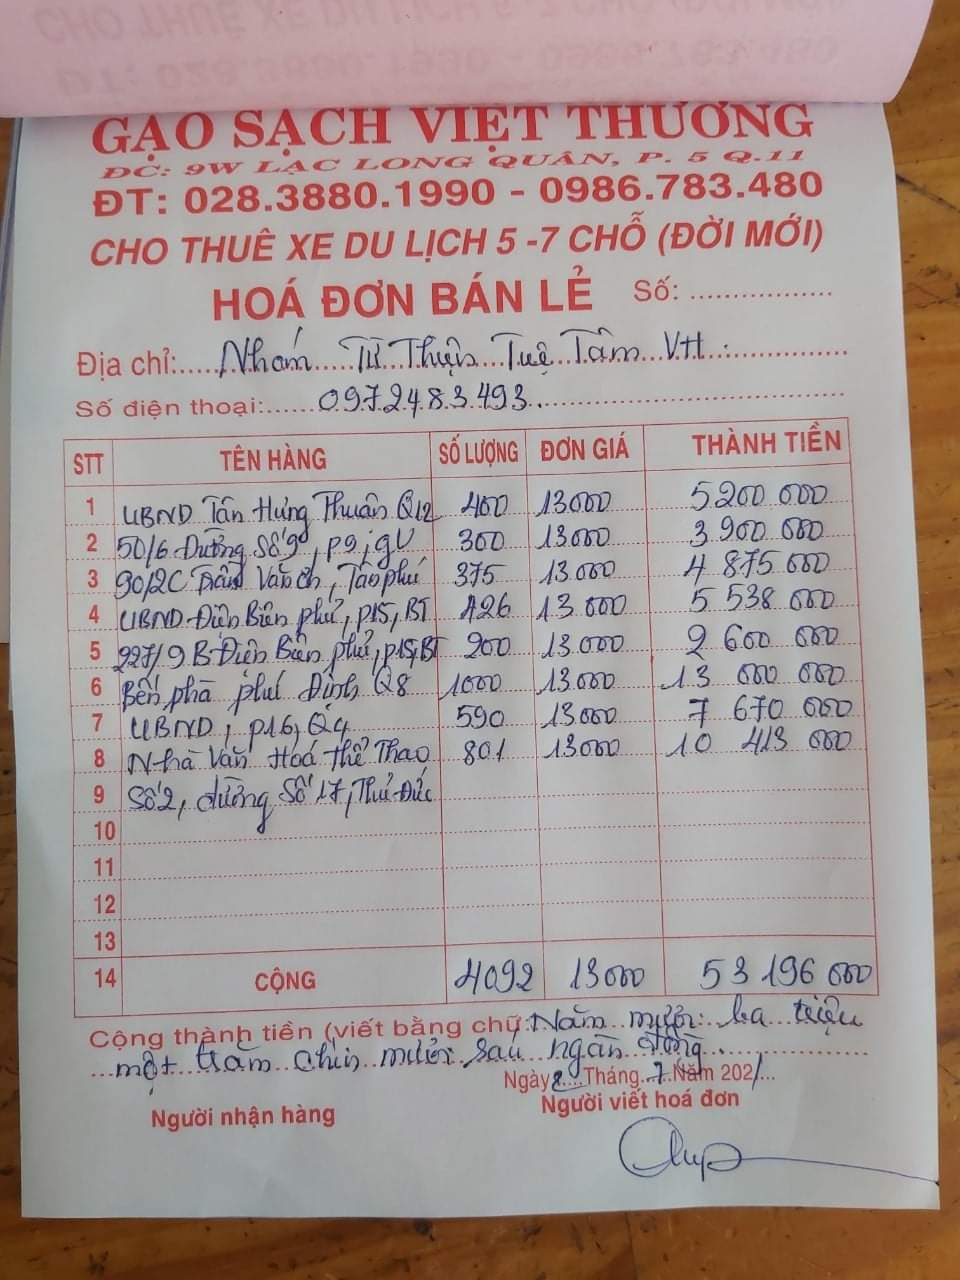 GẠO SẠCH VIỆT THƯƠNG
ĐC: 9W LẠC LONG QUÂN, P. 5 Q.11
ĐT: 028.3880.1990 - 0986.783.480
CHO THUÊ XE DU LỊCH 5 -7 CHỖ (ĐỜI MỚI)
HOÁ ĐƠN BÁN LẺ Số: ................
Địa chỉ: Nhóm Từ Thiện Tuệ Tâm VH
Số điện thoại: 0972483493
STT TÊN HÀNG SỐ LƯỢNG ĐƠN GIÁ THÀNH TIỀN
1 UBND Tân Hưng Thuận Q12 400 13000 5200 000
2 50/6 Đường Số 9, P9, GV 300 13000 3 900 000
3 90/2C Trần Văn , Tân phú 375 13.000 4 875 000
4 UBND Điện Biên phủ, P15, BT 426 13.000 5 538 000
5 227/9B Điện Biên phủ, P15, BT 200 13.000 2 600 000
6 Bến phà phú Định Q8 1000 13.000 13 000 000
7 UBND, P16, Q4 590 13000 7 670 000
8 Nhà Văn Hoá Thể Thao 801 13000 10 413 000
9 Số 2, đường Số 17, Thủ Đức
10
11
12
13
14 CỘNG 4092 13000 53 196 000
Cộng thành tiền (viết bằng chữ: Năm mươi ba triệu
một trăm chín mươi sáu ngàn đồng
Ngày 8 Tháng 7 Năm 2021
Người nhận hàng Người viết hoá đơn